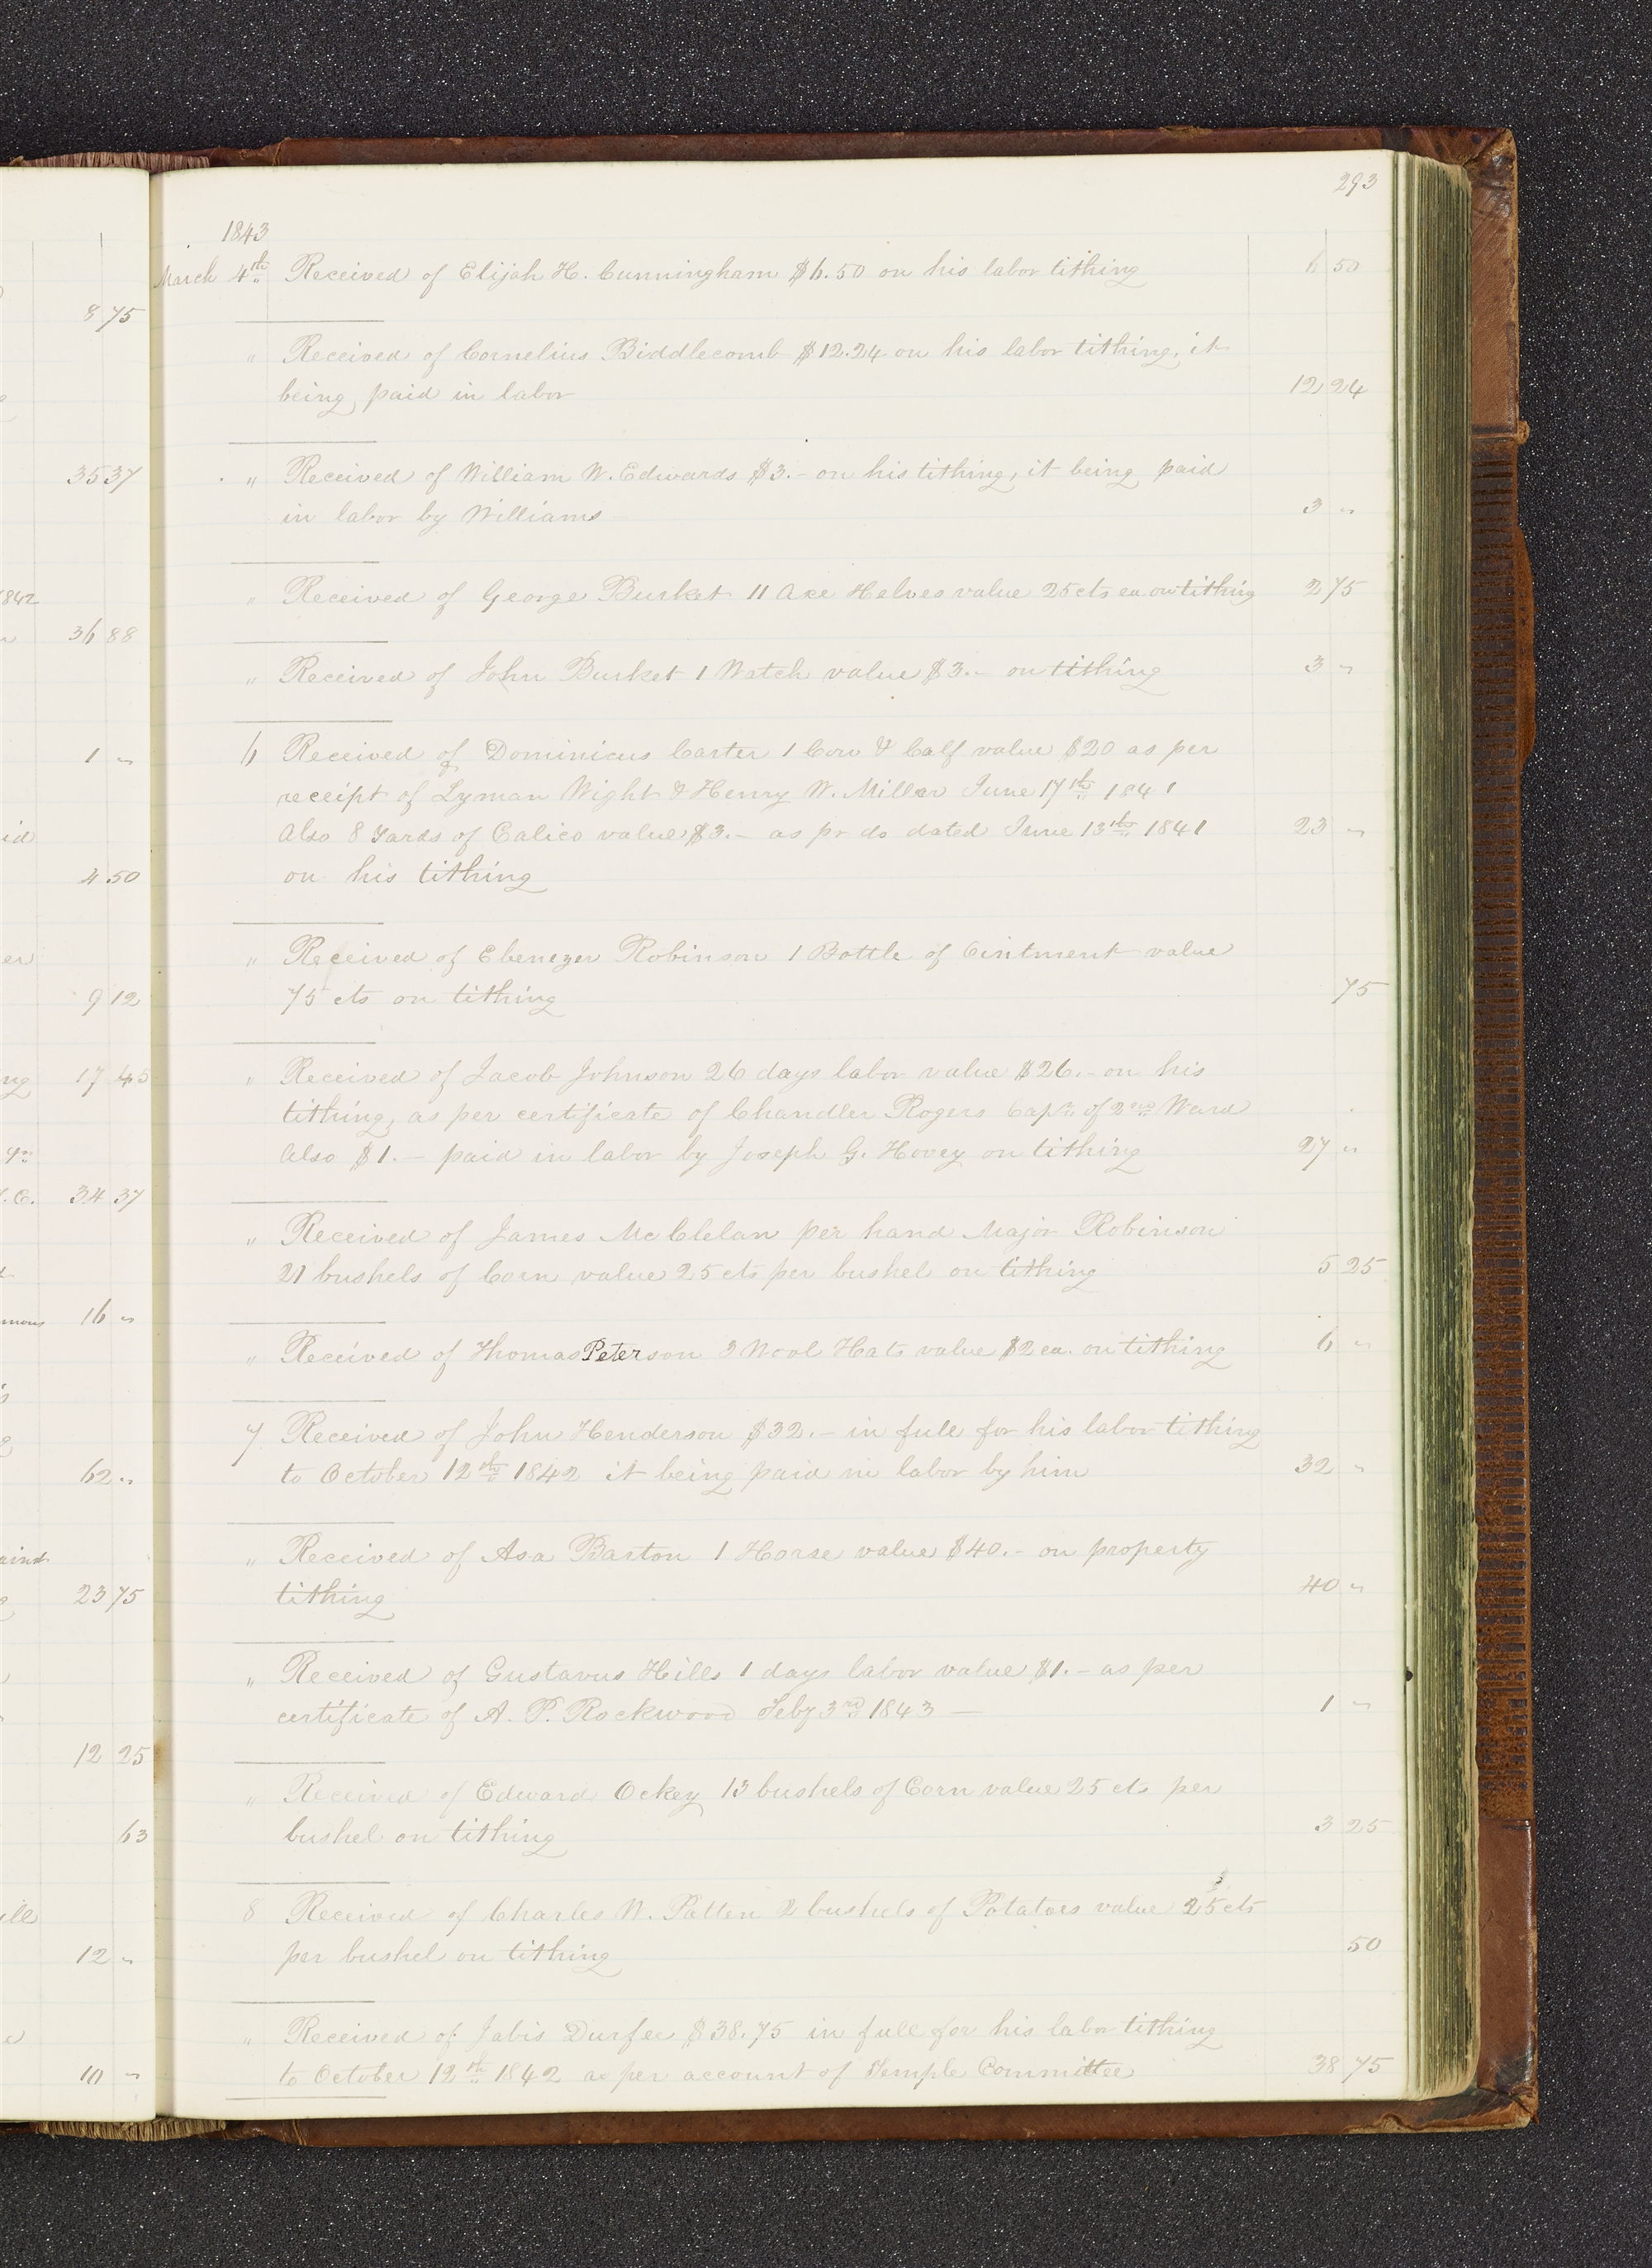 293
1843
March 4th Received of Elijah H. Cunningham $6.50 on his labor tithing 6 50
" Received of Cornelius Biddlecomb $12.24 on his labor tithing, it
being paid in labor 12 24
" Received of William W. Edwards $3.- on his tithing, it being paid
in labor by Williams 3 "
" Received of George Burket 11 Axe Helves value 25 cts ea on tithing 2 75
" Received of John Burket 1 Watch value $3.- on tithing 3 "
6 Received of Dominicus Carter 1 Cow & Calf value $20 as per
receipt of Lyman Wight & Henry W. Miller June 17th 1841
Also 8 Yards of Calico value $3.- as pr do dated June 13th 1841 23 "
on his tithing
" Received of Ebenezer Robinson 1 Bottle of Ointment value
75 cts on tithing 75
" Received of Jacob Johnson 26 days labor value $26.- on his
tithing, as per certificate of Chandler Rogers Capn of 2nd Ward
Also $1.- paid in labor by Joseph G. Hovey on tithing 27 "
" Received of James McClelan per hand Major Robinson
21 bushels of Corn value 25 cts per bushel on tithing 5 25
" Received of Thomas Peterson 3 Wool Hats value $2 ea. on tithing 6 "
7 Received of John Henderson $32.- in full for his labor tithing
to October 12th 1842 it being paid in labor by him 32 "
" Received of Asa Barton 1 Horse value $40.- on property
tithing 40 "
" Received of Gustavus Hills 1 days labor value $1.- as per
certificate of A. P. Rockwood Feby 3rd 1843 — 1 "
" Received of Edward Ockey 13 bushels of Corn value 25 cts per
bushel on tithing 3 25
8 Received of Charles W. Patten 2 bushels of Potatoes value 25 cts
per bushel on tithing 50
" Received of Jabis Durfee $38.75 in full for his labor tithing
to October 12th 1842 as per account of Temple Committee 38 75
8 75
35 37
1842
36 88
1 "
id
4 50
er
9 12
ng 17 45
34 37
16 "
62 "
23 75
12 25
63
12 "
10 "